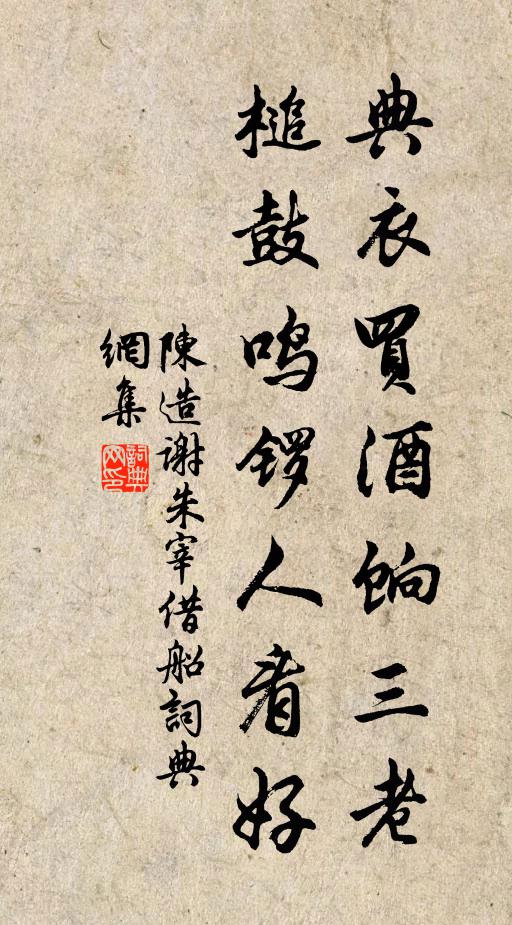 典衣買酒餉三老
槌鼓鳴锣人看好
陳造谢朱宰借船詞典
網集
詞典網印